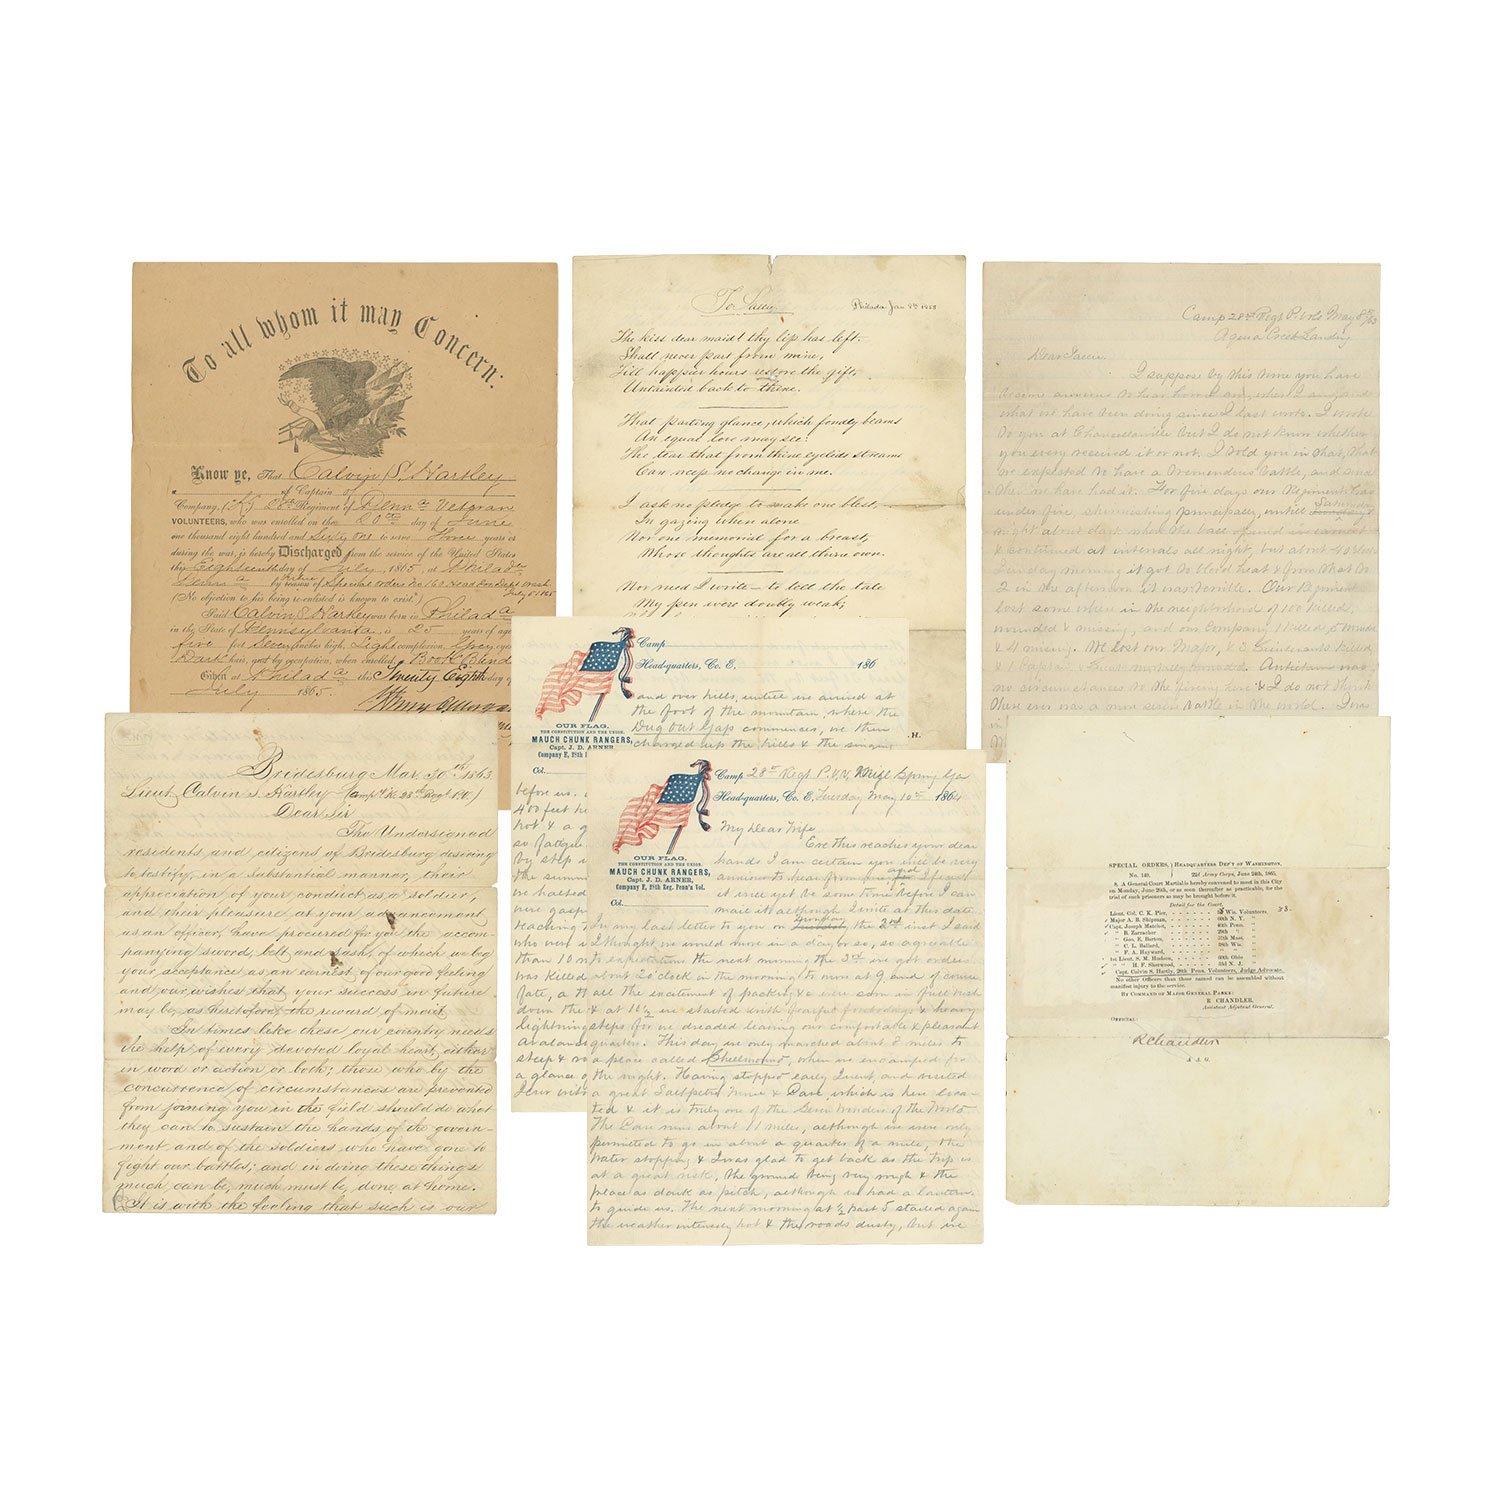 To all whom it may Concern:
Know ye, That Calvin S. Hartley
a of Captain of
Company, (K,) 28th Regiment of Penna Veteran
VOLUNTEERS, who was enrolled on the 20th day of June
one thousand eight hundred and Sixty One to serve Three years or
during the war, is hereby Discharged from the service of the United States
this Eighteenth day of July, 1865, at Philada
Penna by reason of Special Orders No 160 Head Qrs Dept Wash
July 5 1865
(No objection to his being re-enlisted is known to exist.)
Said Calvin S. Hartley was born in Philada
in the State of Pennsylvania, is 25 years of age,
five feet Seven inches high, Light complexion, Grey eyes
Dark hair, and by occupation, when enrolled, a Book Binde
Given at Philada this Twenty Eighth day of
July 1865.
To Lacie
Philada Jan 9th 1858
The kiss dear maid! thy lip has left.
Shall never part from mine,
Till happier hours restore the gift,
Untainted back to thine.
That parting glance, which fondly beams
An equal love may see:
The tear that from thine eyelids streams
Can weep no change in me.
I ask no pledge to make one blest,
In gazing when alone
Nor one memorial for a breast,
Whose thoughts are all thine own.
Nor need I write — to tell the tale
My pen were doubly weak;
Camp 28th Regt P. Vols May 8th /63
Aquia Creek Landing
Dear Lacie.
I suppose by this time you have
become anxious to hear how I am, where I am, and
what we have been doing since I last wrote. I wrote
to you at Chancellorville but I do not know whether
you every received it or not. I told you in that, that
we expected to have a tremendous battle, and sure
then we have had it. For five days our Regiment was
under fire, skirmishing principally, until Saturday
night about dark when the ball opened in earnest
& continued at intervals all night, but about 4 oclock
Sunday morning it got to blood heat & from that to
2 in the afternoon it was terrible. Our Regiment
lost some where in the neighborhood of 100 killed,
wounded & missing, and our Company 1 killed 5 wounded
& 4 missing. We lost our Major, & 3 Lieutenants killed
& 1 Capt & 1 Lieut mortally wounded. Antietam was
no circumstances to the firing here & I do not think
there ever was a more severe battle in the world. I was
Bridesburg Mar. 30th 1863
Lieut Calvin S. Hartley (Camp "K" 28th Regt P.V.)
Dear Sir
The Undersigned
residents and citizens of Bridesburg desiring
to testify, in a substantial manner, their
appreciation of your conduct as a soldier,
and their pleasure at your advancement
as an officer, have procured for you the accom
panying sword, belt and sash, of which we beg
your acceptance as an earnest of our good feeling
and our wishes that your success in future
may be, as heretofore, the reward of merit.
In times like these our country needs
the help of every devoted loyal heart, either
in word or action or both; those who by the
concurrence of circumstances are prevented
from joining you in the field should do what
they can to sustain the hands of the govern-
ment and of the soldiers who have gone to
fight our battles; and in doing these things
much can be, much must be, done at home.
It is with the feeling that such is our
Camp
Head-quarters, Co. E. 186
OUR FLAG.
THE CONSTITUTION AND THE UNION.
MAUCH CHUNK RANGERS,
Capt. J. D. ARNER,
Company E, 28th
Col.
and over hills, untill we arrived at
the foot of the mountain, where the
Dug Out Gap commences, we then
charged up the hills & the singing
before us.
400 feet he
hot & a g
so fatigue
by step u
the summ
we halted
were gasp
reaching t
who were i
than 10 m
was killed
late, a th
down the
lightning
avalanc
steep & ro
a glance o
H.
Camp 28th Regt P.V.V, Kelly Spring Ga
Head-quarters, Co. E, Tuesday May 10th 1864
OUR FLAG.
THE CONSTITUTION AND THE UNION.
MAUCH CHUNK RANGERS,
Capt. J. D. ARNER,
Company E, 28th Reg. Penn'a Vol.
Col.
My Dear Wife
Ere this reaches your dear
hands I am certain you will be very
anxious to hear from me and I feint
it ince yet be some time before I can
mail it although I write at this date.
In my last letter to you on the 2nd inst I said
I thought we would move in a day or so, so agreable
to expectations the next morning the 3rd we got orders
about 2 o'clock in the morning to move at 9, and of course
all the excitement of packing &c were soon in full rush
& at 10½ we started with fearful forebodings & heavy
steps for we dreaded leaving our comfortable & pleasant
quarters. This day we only marched about 8 miles to
a place called Shellmound, where we encamped for
the night. Having stopped early I went and visited
a great Saltpetre Mine & Cave, which is here loca-
ted & it is truly one of the Seven Wonders of the World.
The Cave runs about 11 miles, although we were only
permitted to go in about a quarter of a mile, the
water stopping & I was glad to get back as the trip is
at a great risk, the ground being very rough & the
place as dark as pitch, although we had a lantern
to guide us. The next morning at ½ past 5 started again
the weather intensely hot & the roads dusty, but we
SPECIAL ORDERS, } HEADQUARTERS DEP'T OF WASHINGTON,
No. 149. } 22d Army Corps, June 24th, 1865.
8. A General Court Martial is hereby convened to meet in this City
on Monday, June 26th, or as soon thereafter as practicable, for the
trial of such prisoners as may be brought before it.
Detail for the Court.
Lieut. Col. C. K. Pier, Wis. Volunteers, 38.
Major A. B. Shipman, 60th N. Y. "
Capt. Joseph Matchet, 46th Penn. "
" B. Zarracher 29th " "
" Geo. E. Barton, 57th Mass. "
" C. L. Ballard, 38th Wis. "
" F. A. Hayward, " " "
1st Lieut. S. M. Hudson, 60th Ohio "
" H. F. Sherwood, 33d N. J. "
Capt. Calvin S. Hartly, 28th Penn. Volunteers, Judge Advocate.
No other Officers than those named can be assembled without
manifest injury to the service.
BY COMMAND OF MAJOR GENERAL PARKE:
R. CHANDLER,
Assistant Adjutant General.
OFFICIAL:
R Chandler
A. A. G.